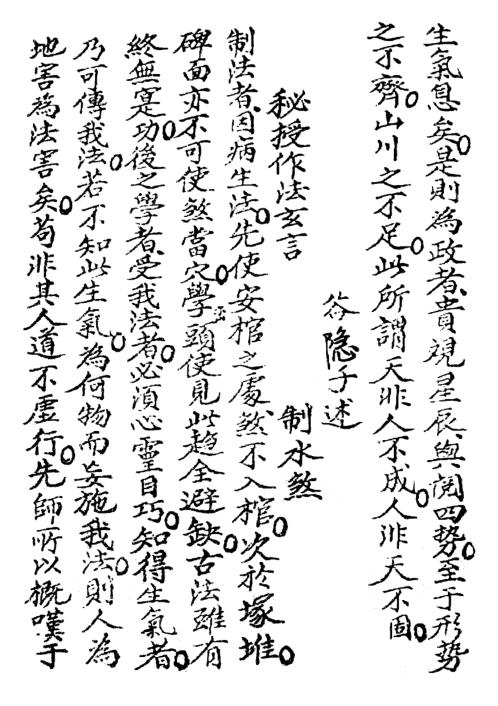 生氣息矣是則為政者貴視星辰與閱四勢至于形勢
之不齊山川之不足此所謂天非人不成人非天不固
谷隱子述
秘授作法玄言
制水煞
制法者因病生法先使安棺之處煞不入棺次於塚堆
碑面亦不可使煞當穴學頭使見此趨全避缺古法雖有
終無寔功後之學者受我法者必須心靈目巧知得生氣者
乃可傳我法若不知此生氣為何物而妄施我法則人為
地害為法害矣苟非其人道不虛行先師所以概嘆于